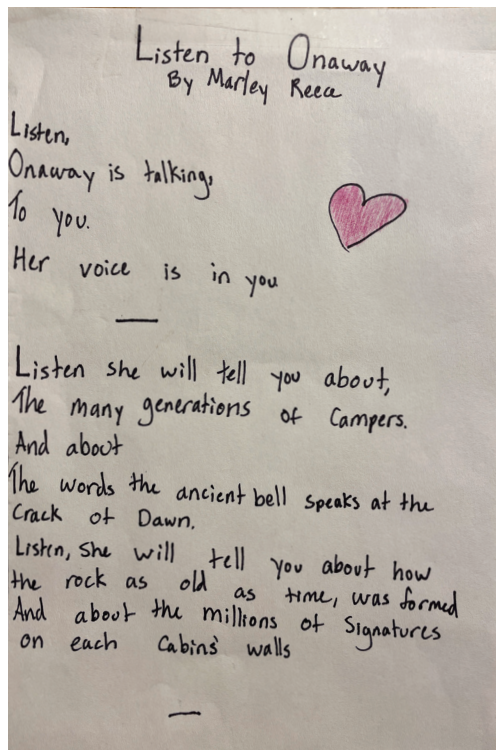 Listen to Onaway
By Marley Reece
Listen,
Onaway is talking,
To you.
Her voice is in you
—
Listen she will tell you about,
The many generations of Campers.
And about
The words the ancient bell speaks at the
Crack of Dawn.
Listen, She will tell you about how
the rock as old as time, was formed
And about the millions of Signatures
on each Cabins' walls
—